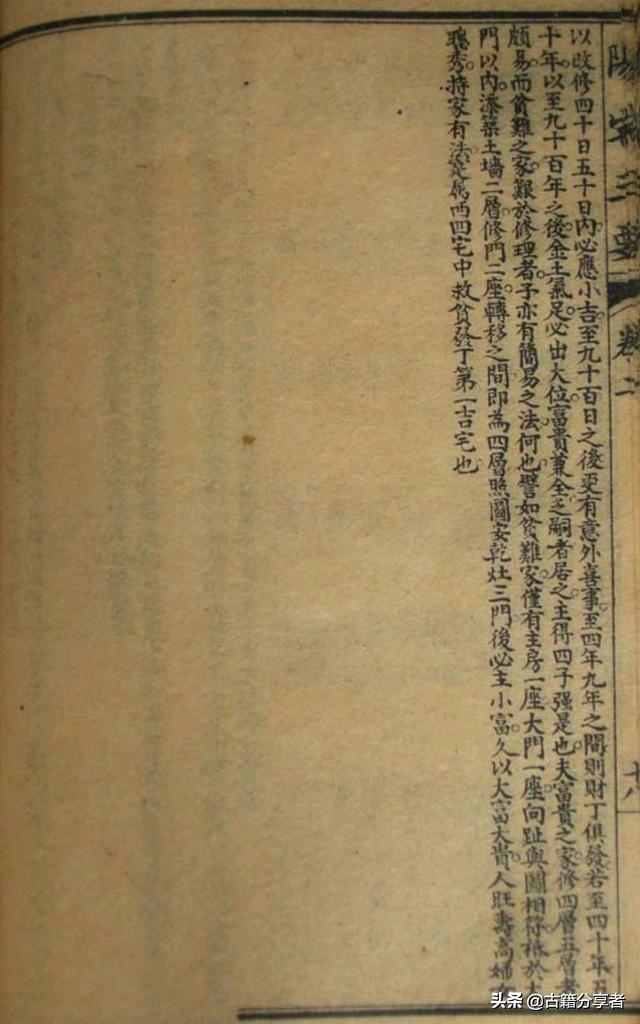 陽宅三要 卷二
十八
以改修四十日五十日內必應小吉至九十百日之後更有意外喜事至四年九年之間則財丁俱發若至四十年五
十年以至九十百年之後金土氣足必出大位富貴兼全乏嗣者居之主得四子强是也夫富貴之家修四層五層者
頗易而貧難之家艱於修理者子亦有簡易之法何也譬如貧難家僅有主房一座大門一座向趾與圖相符祗於大
門以內添築土墻二層修門二座轉移之間即為四層照圖安乾灶三門後必主小富久以大富大貴人旺壽高婦
聰秀持家有法寔属西四宅中救貧發丁第一吉宅也
头条 @古籍分享者